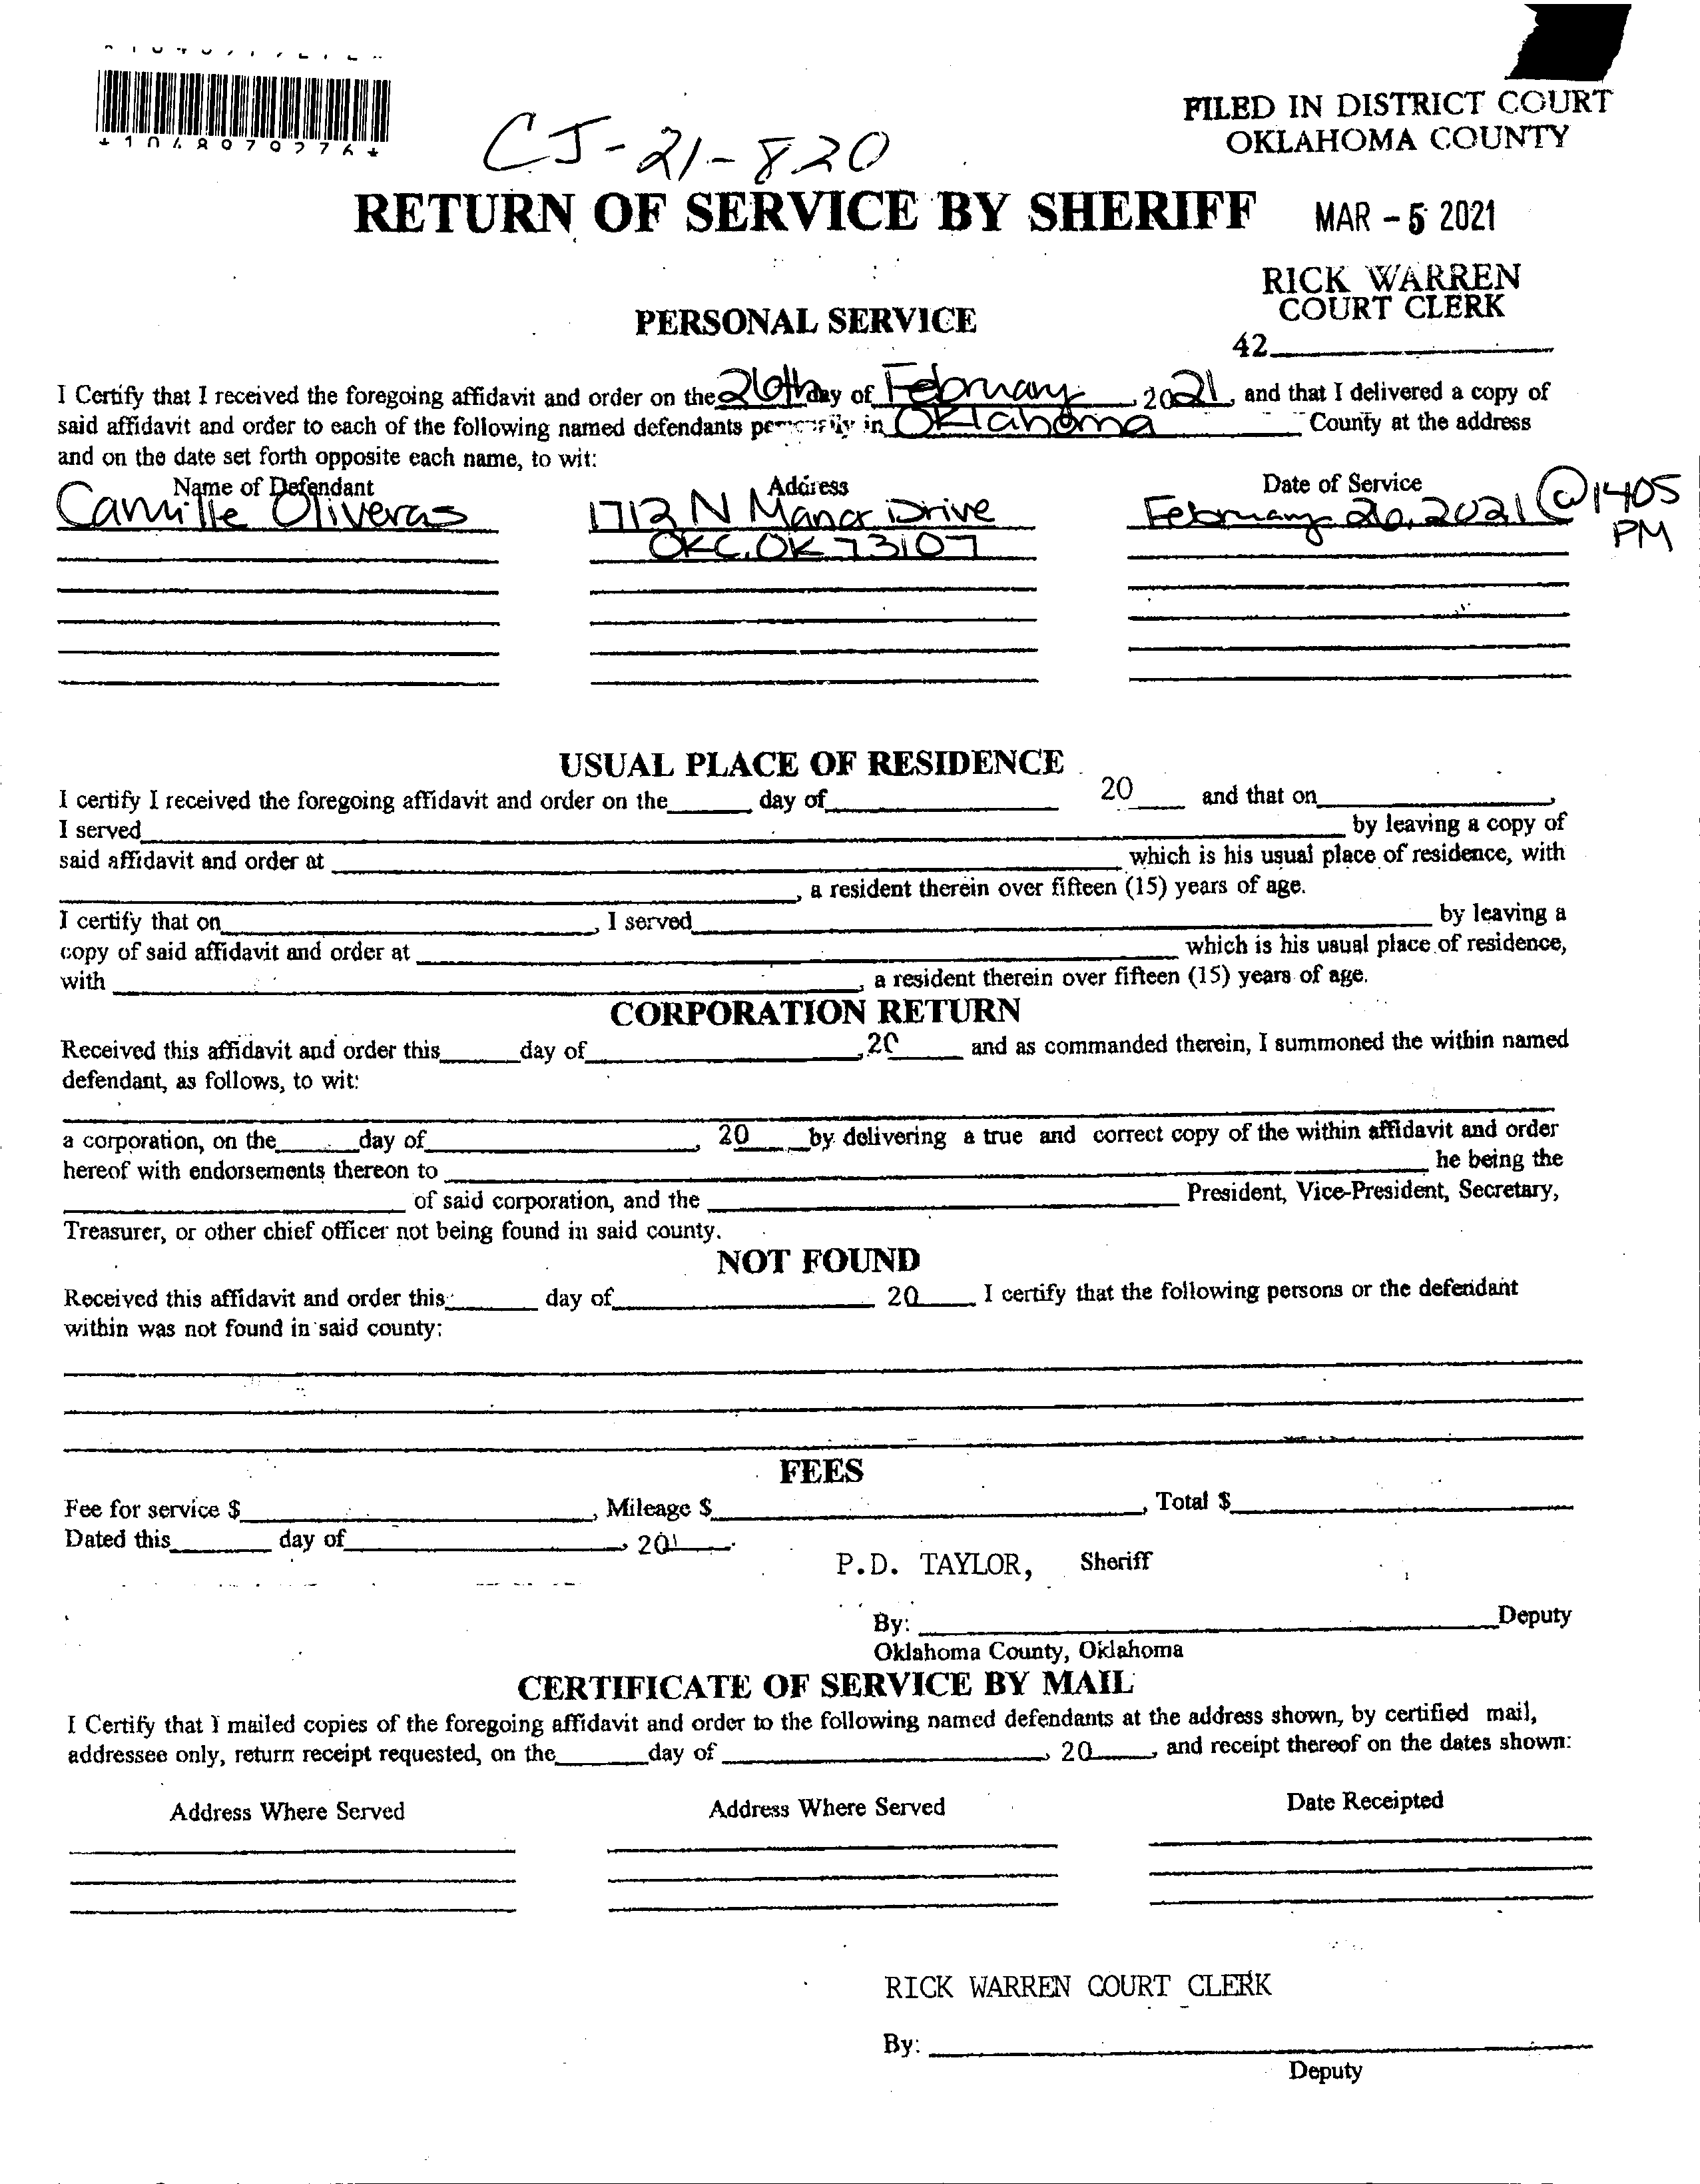 *1048079276*
CJ-21-820
FILED IN DISTRICT COURT
OKLAHOMA COUNTY
RETURN OF SERVICE BY SHERIFF
MAR - 5 2021
RICK WARREN
COURT CLERK
PERSONAL SERVICE
42
I Certify that I received the foregoing affidavit and order on the 26th day of February 2021, and that I delivered a copy of
said affidavit and order to each of the following named defendants personally in Oklahoma County at the address
and on the date set forth opposite each name, to wit:
Name of Defendant Address Date of Service
Camille Oliveras 1712 N Manor Drive February 26, 2021 @ 1405
OKC, OK 73107 PM
USUAL PLACE OF RESIDENCE
I certify I received the foregoing affidavit and order on the day of 20 and that on ,
I served by leaving a copy of
said affidavit and order at which is his usual place of residence, with
, a resident therein over fifteen (15) years of age.
I certify that on , I served by leaving a
copy of said affidavit and order at which is his usual place of residence,
with , a resident therein over fifteen (15) years of age.
CORPORATION RETURN
Received this affidavit and order this day of , 20 and as commanded therein, I summoned the within named
defendant, as follows, to wit:
a corporation, on the day of , 20 by delivering a true and correct copy of the within affidavit and order
hereof with endorsements thereon to he being the
of said corporation, and the President, Vice-President, Secretary,
Treasurer, or other chief officer not being found in said county.
NOT FOUND
Received this affidavit and order this day of 20 I certify that the following persons or the defendant
within was not found in said county:
FEES
Fee for service $ , Mileage $ , Total $
Dated this day of , 20
P.D. TAYLOR, Sheriff
By: Deputy
Oklahoma County, Oklahoma
CERTIFICATE OF SERVICE BY MAIL
I Certify that I mailed copies of the foregoing affidavit and order to the following named defendants at the address shown, by certified mail,
addressee only, return receipt requested, on the day of , 20 , and receipt thereof on the dates shown:
Address Where Served Address Where Served Date Receipted
RICK WARREN COURT CLERK
By:
Deputy